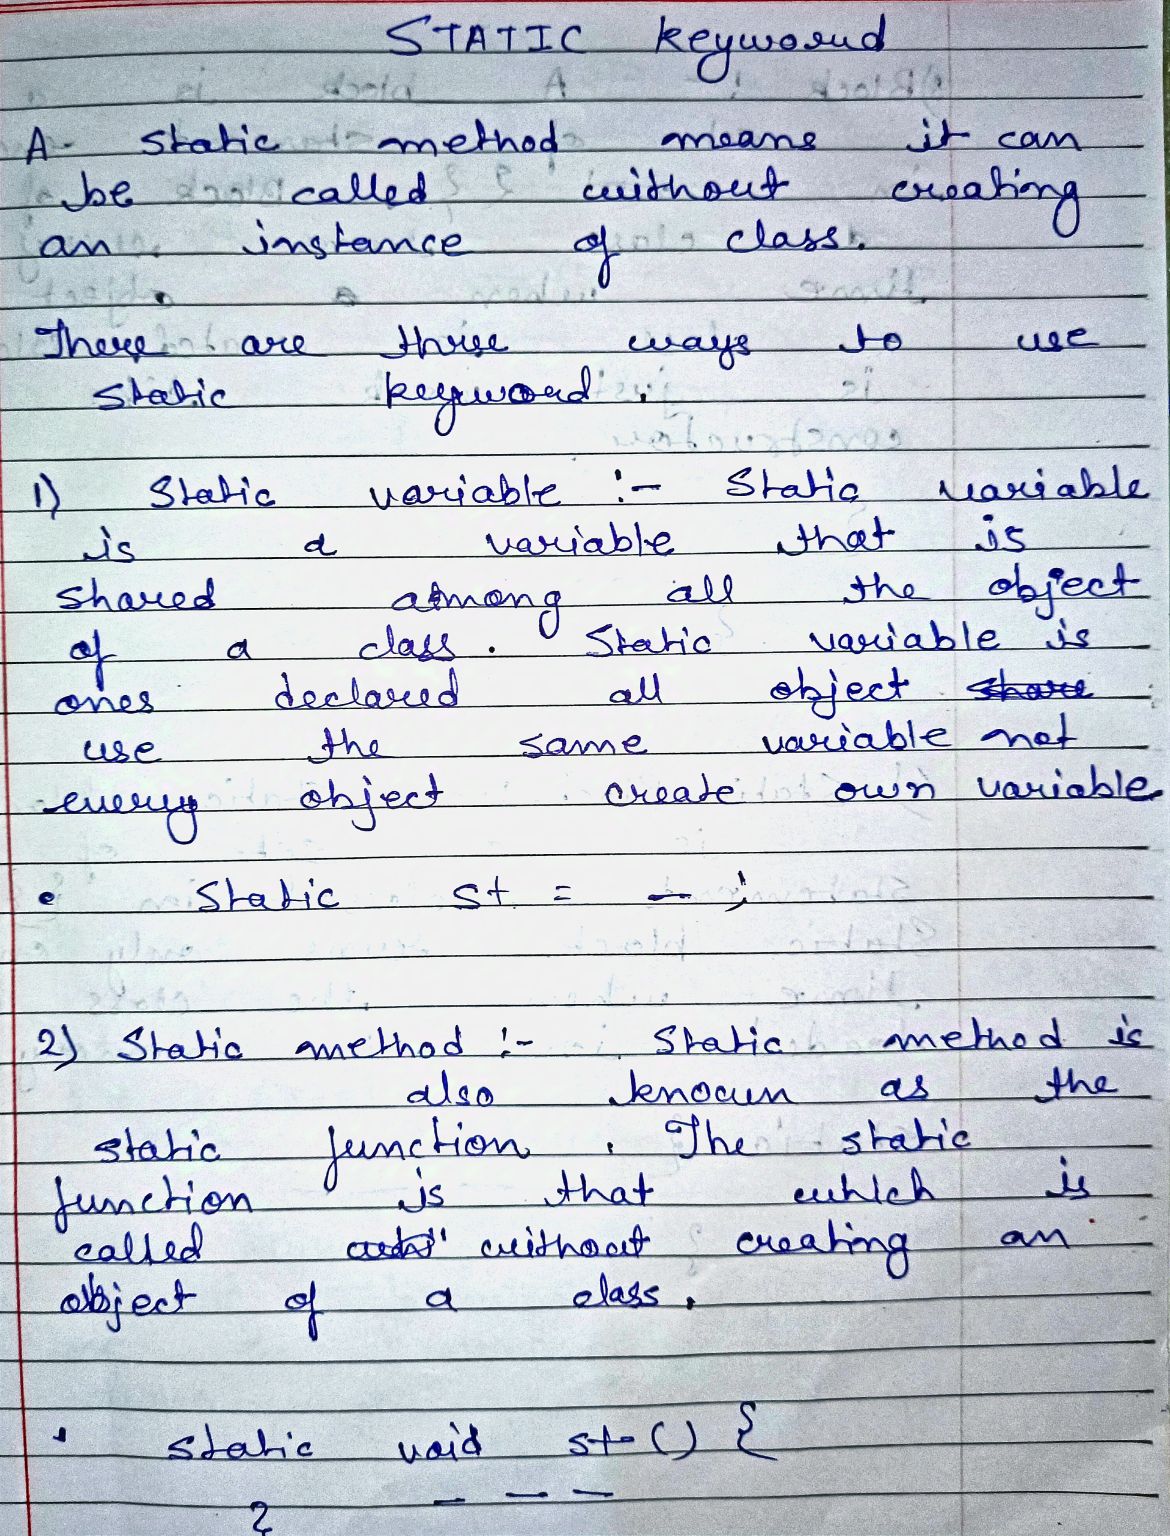 STATIC keyword
A static method means it can
be called without creating
an instance of class.
There are three ways to use
static keyword.
1) Static variable :- Static variable
is a variable that is
shared among all the object
of a class. Static variable is
ones declared all object share
use the same variable not
every object create own variable
• Static st = — ;
2) Static method :- Static method is
also known as the
static function. The static
function is that which is
called without creating an
object of a class.
• static void st() {
— — —
}